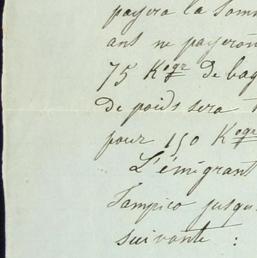 payera la Som
ans ne payeron
75 Kogr de bag
de poids sera
pour 150 Kogr
L'émigrant
Tampico jusqu
suivante :